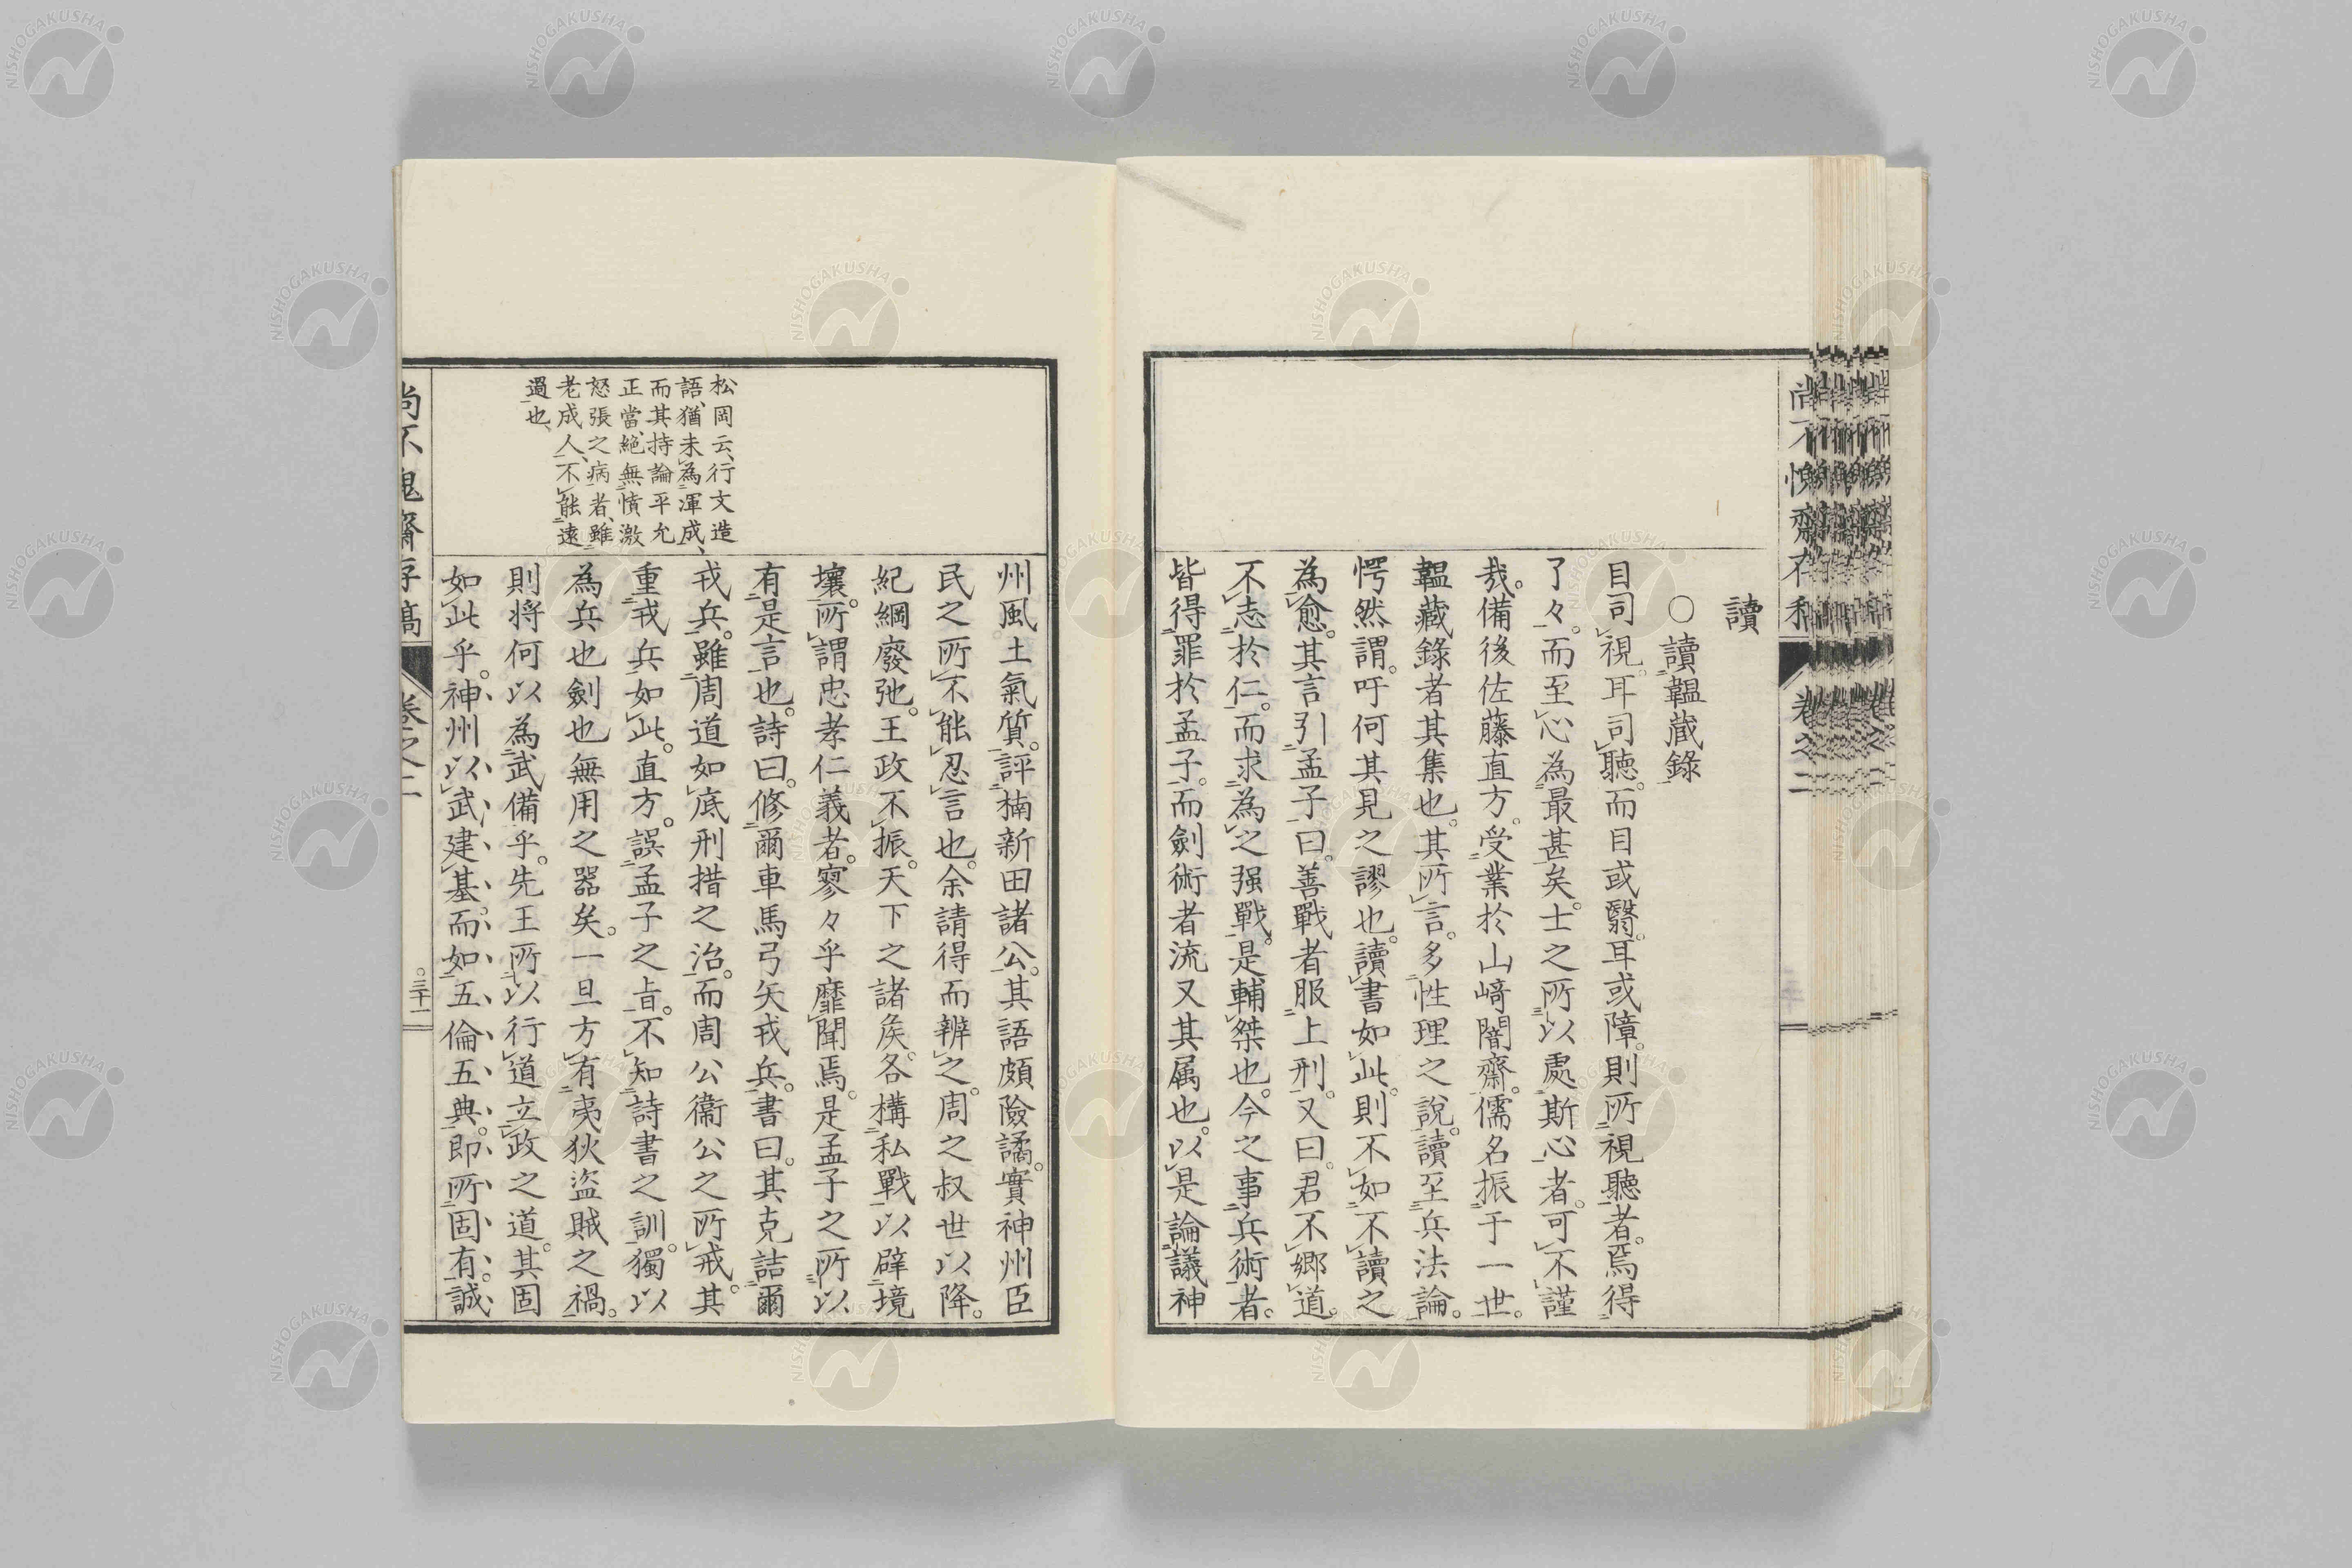 讀
○讀韞藏錄
目司視耳司聽。而目或翳。耳或障。則所視聽者。焉得
了々。而至心為最甚矣。士之所以處斯心者。可不謹
哉。備後佐藤直方。受業於山﨑闇齋。儒名振于一世。
韞藏錄者其集也。其所言。多性理之說。讀至兵法論。
愕然謂。吁何其見之謬也。讀書如此。則不如不讀之
為愈。其言引孟子曰。善戰者服上刑。又曰。君不鄉道。
不志於仁。而求為之强戰。是輔桀也。今之事兵術者。
皆得罪於孟子。而劍術者流又其属也。以是論議神
州風土氣質。評楠新田諸公。其語頗險譎。實神州臣
民之所不能忍言也。余請得而辨之。周之叔世以降。
紀綱廢弛。王政不振。天下之諸矦。各構私戰以辟境
壤。所謂忠孝仁義者。寥々乎靡聞焉。是孟子之所以
有是言也。詩曰。修爾車馬弓矢戎兵。書曰。其克詰爾
戎兵。雖周道如底刑措之治。而周公衞公之所戒。其
重戎兵如此。直方。誤孟子之旨。不知詩書之訓。獨以
為兵也劍也無用之器矣。一旦方有夷狄盜賊之禍。
則将何以為武備乎。先王所以行道立政之道。其固
如此乎。神州以武建基。而如五倫五典。即所固有。誠
松岡云、行文造
語、猶未為渾成、
而其持論平允
正當、絕無憤激
怒張之病者、雖
老成人、不能遠
過也、
尚不愧齋存稿
卷之二
三十二
NISHOGAKUSHA